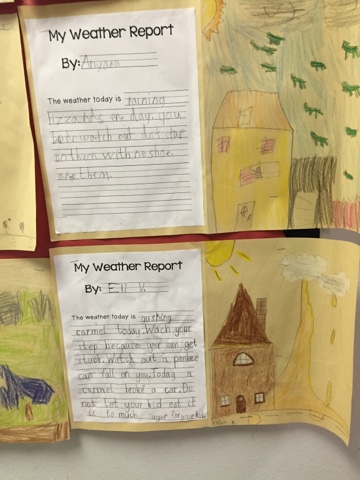 My Weather Report
By: Anyara
The weather today is raining
lizzards one day, you
beter watch out dint stepe
on them with no shoe.
are them.
My Weather Report
By: Ell V.
The weather today is gushing
carmel today. Wach your
step because you can get
stuck. Watch out a pancace
can fall on you. Today a
carmel broke a car. Do
not let your kid eat it
is to much sugar for